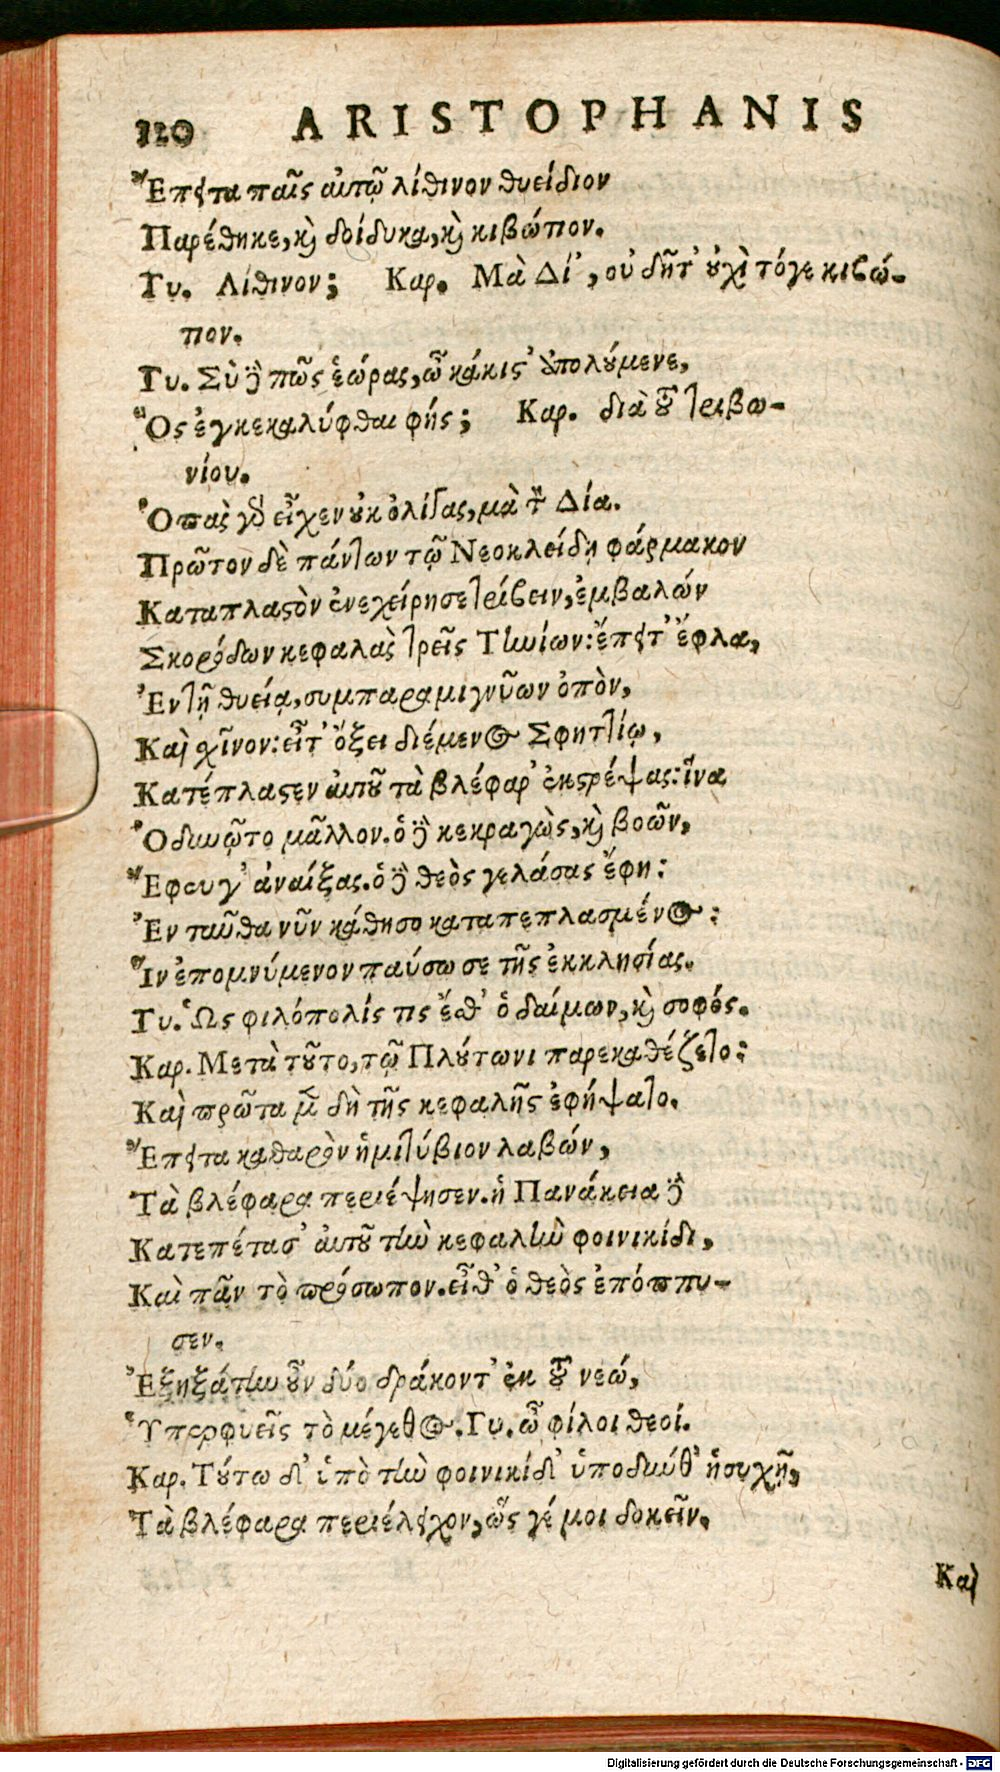 120 ARISTOPHANIS
Ἔπειτα παῖς αὐτῷ λίθινον θυείδιον
Παρέθηκε, καὶ δοίδυκα, καὶ κιβώτιον.
Γυ. Λίθινον; Καρ. Μὰ Δί', οὐ δῆτ' οὐχὶ τόγε κιβώ-
τιον.
Γυ. Σὺ δὲ πῶς ἑώρας, ὦ κάκιστ' ἀπολούμενε,
Ὃς ἐγκεκαλύφθαι φής; Καρ. διὰ τοῦ τριβω-
νίου.
Ὀπὰς γὰρ εἶχεν οὐκ ὀλίγας, μὰ τὸν Δία.
Πρῶτον δὲ πάντων τῷ Νεοκλείδῃ φάρμακον
Καταπλαστὸν ἐνεχείρησε τρίβειν, ἐμβαλών
Σκορόδων κεφαλὰς τρεῖς Τηνίων: ἔπειτ' ἔφλα,
Ἐν τῇ θυείᾳ, συμπαραμιγνύων ὀπὸν,
Καὶ σχῖνον: εἶτ' ὄξει διέμενος Σφηττίῳ,
Κατέπλασεν αὐτοῦ τὰ βλέφαρ' ἐκστρέψας: ἵνα
Ὀδυνῷτο μᾶλλον. ὁ δὲ κεκραγὼς, καὶ βοῶν,
Ἔφευγ' ἀναίξας. ὁ δὲ θεὸς γελάσας ἔφη:
Ἐνταῦθα νῦν κάθησο καταπεπλασμένος:
Ἵν' ἐπομνύμενον παύσω σε τῆς ἐκκλησίας.
Γυ. Ὡς φιλόπολίς τις ἔσθ' ὁ δαίμων, καὶ σοφός.
Καρ. Μετὰ τοῦτο, τῷ Πλούτωνι παρεκαθέζετο:
Καὶ πρῶτα μὲν δὴ τῆς κεφαλῆς ἐφήψατο.
Ἔπειτα καθαρὸν ἡμιτύβιον λαβών,
Τὰ βλέφαρα περιέψησεν. ἡ Πανάκεια δὲ
Κατεπέτασ' αὐτοῦ τὴν κεφαλὴν φοινικίδι,
Καὶ πᾶν τὸ πρόσωπον. εἶθ' ὁ θεὸς ἐπόππυ-
σεν.
Ἐξηξάτην οὖν δύο δράκοντ' ἐκ τοῦ νεώ,
Ὑπερφυεῖς τὸ μέγεθος. Γυ. ὦ φίλοι θεοί.
Καρ. Τούτω δ' ὑπὸ τὴν φοινικίδ' ὑποδύνθ' ἡσυχῆ,
Τὰ βλέφαρα περιέλειχον, ὥς γέ μοι δοκεῖν.
Καὶ
Digitalisierung gefördert durch die Deutsche Forschungsgemeinschaft - DFG